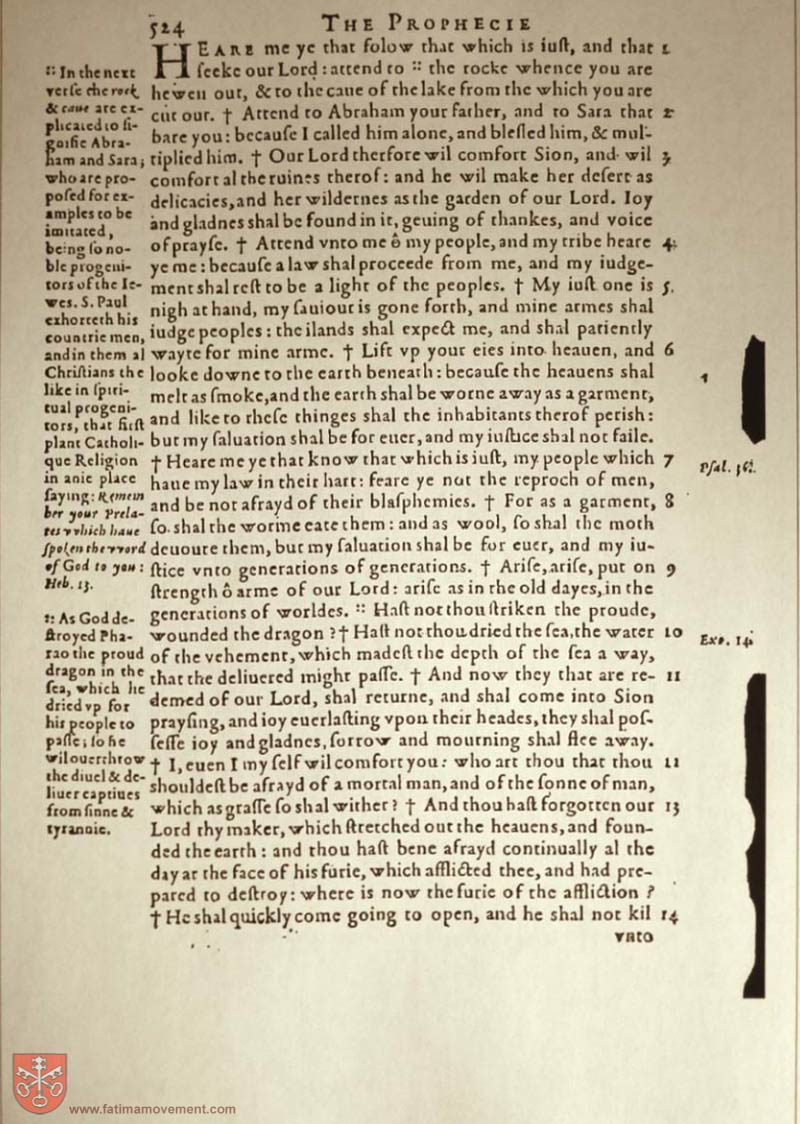 524 THE PROPHECIE
HEARE me ye that folow that which is iuſt, and that 1
ſeeke our Lord: attend to :: the rocke whence you are
hewen out, & to the caue of the lake from the which you are
cut out. † Attend to Abraham your father, and to Sara that 2
bare you: becauſe I called him alone, and bleſſed him, & mul-
tiplied him. † Our Lord therfore wil comfort Sion, and wil 3
comfort al the ruines therof: and he wil make her deſert as
delicacies, and her wildernes as the garden of our Lord. Ioy
and gladnes shal be found in it, geuing of thankes, and voice
of prayſe. † Attend vnto me ô my people, and my tribe heare 4
ye me: becauſe a law shal proceede from me, and my iudge-
ment shal reſt to be a light of the peoples. † My iuſt one is 5
nigh at hand, my ſauiour is gone forth, and mine armes shal
iudge peoples: the ilands shal expect me, and shal patiently
wayte for mine arme. † Lift vp your eies into heauen, and 6
looke downe to the earth beneath: becauſe the heauens shal
melt as ſmoke, and the earth shal be worne away as a garment,
and like to theſe thinges shal the inhabitants therof perish:
but my ſaluation shal be for euer, and my iuſtice shal not faile.
† Heare me ye that know that which is iuſt, my people which 7
haue my law in their hart: feare ye not the reproch of men,
and be not afrayd of their blaſphemies. † For as a garment, 8
ſo shal the worme eate them: and as wool, ſo shal the moth
deuoure them, but my ſaluation shal be for euer, and my iu-
ſtice vnto generations of generations. † Ariſe, ariſe, put on 9
ſtrength ô arme of our Lord: ariſe as in the old dayes, in the
generations of worldes. :: Haſt not thou ſtriken the proude,
wounded the dragon? † Haſt not thou dried the ſea, the water 10
of the vehement, which madeſt the depth of the ſea a way,
that the deliuered might paſſe. † And now they that are re- 11
demed of our Lord, shal returne, and shal come into Sion
prayſing, and ioy euerlaſting vpon their heades, they shal poſ-
ſeſſe ioy and gladnes, ſorrow and mourning shal flee away.
† I, euen I my ſelf wil comfort you: who art thou that thou 11
shouldeſt be afrayd of a mortal man, and of the ſonne of man,
which as graſſe ſo shal wither? † And thou haſt forgotten our 13
Lord thy maker, which ſtretched out the heauens, and foun-
ded the earth: and thou haſt bene afrayd continually al the
day at the face of his furie, which afflicted thee, and had pre-
pared to deſtroy: where is now the furie of the affliction?
† He shal quickly come going to open, and he shal not kil 14
vnto
:: In the next
verſe the rock
& caue are ex-
plicated to ſi-
gnifie Abra-
ham and Sara;
who are pro-
poſed for ex-
amples to be
imitated,
being ſo no-
ble progeni-
tors of the Ie-
wes. S. Paul
exhorteth his
countrie men,
and in them al
Chriſtians the
like in ſpiri-
tual progeni-
tors, that firſt
plant Catholi-
que Religion
in anie place
ſaying: Remem
ber your Prela-
tes which haue
ſpoken the word
of God to you:
Heb. 13.
:: As God de-
ſtroyed Pha-
rao the proud
dragon in the
ſea, which he
dried vp for
his people to
paſſe; ſo he
wil ouerthrow
the diuel & de-
liuer captiues
from ſinne &
tyrannie.
Pſal. 36.
Exo. 14.
www.fatimamovement.com